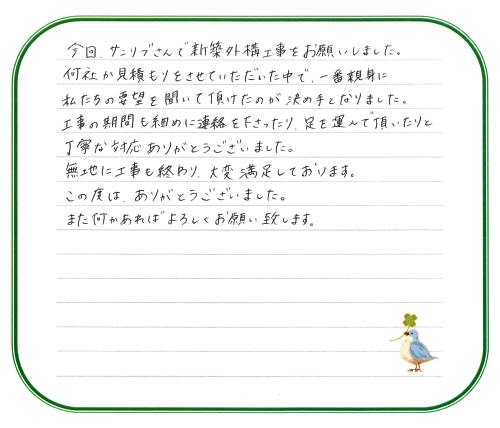 今回、サンリブさんで新築外構工事をお願いしました。
何社か見積もりをさせていただいた中で、一番親身に
私たちの要望を聞いて頂けたのが決め手となりました。
工事の期間も細めに連絡を下さったり、足を運んで頂いたりと
丁寧な対応ありがとうございました。
無地に工事も終わり、大変満足しております。
この度は、ありがとうございました。
また何かあればよろしくお願い致します。